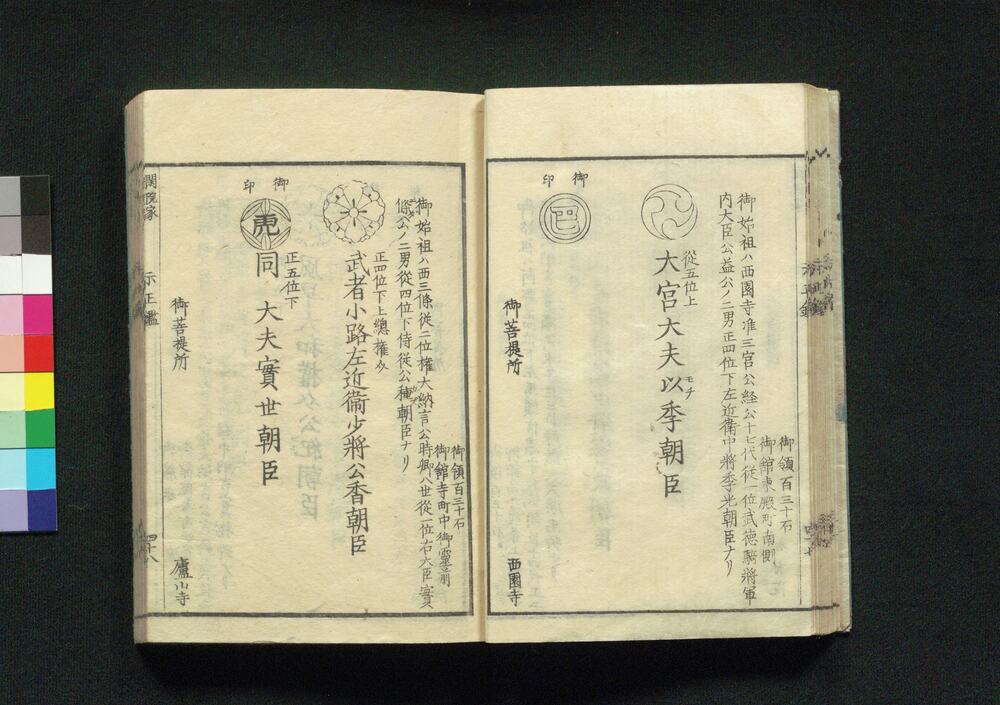 御領百三十石
御館東殿町南側
御始祖ハ西園寺准三宮公経公十七代従一位武徳騎将軍
内大臣公益公ノ二男正四位下左近衞中将季光朝臣ナリ
従五位上
大宮大夫以季朝臣
モチ
御印
巴
御菩提所
西園寺
御領百三十石
御館寺町中御霊前
御始祖ハ西三條従二位権大納言公時卿八世従一位右大臣實
條公ノ二男従四位下侍従公種朝臣ナリ
正四位下上總権介
武者小路左近衞少将公香朝臣
御印
虎
正五位下
同 大夫實世朝臣
御菩提所
廬山寺
閑院家
示正鑑
四十八